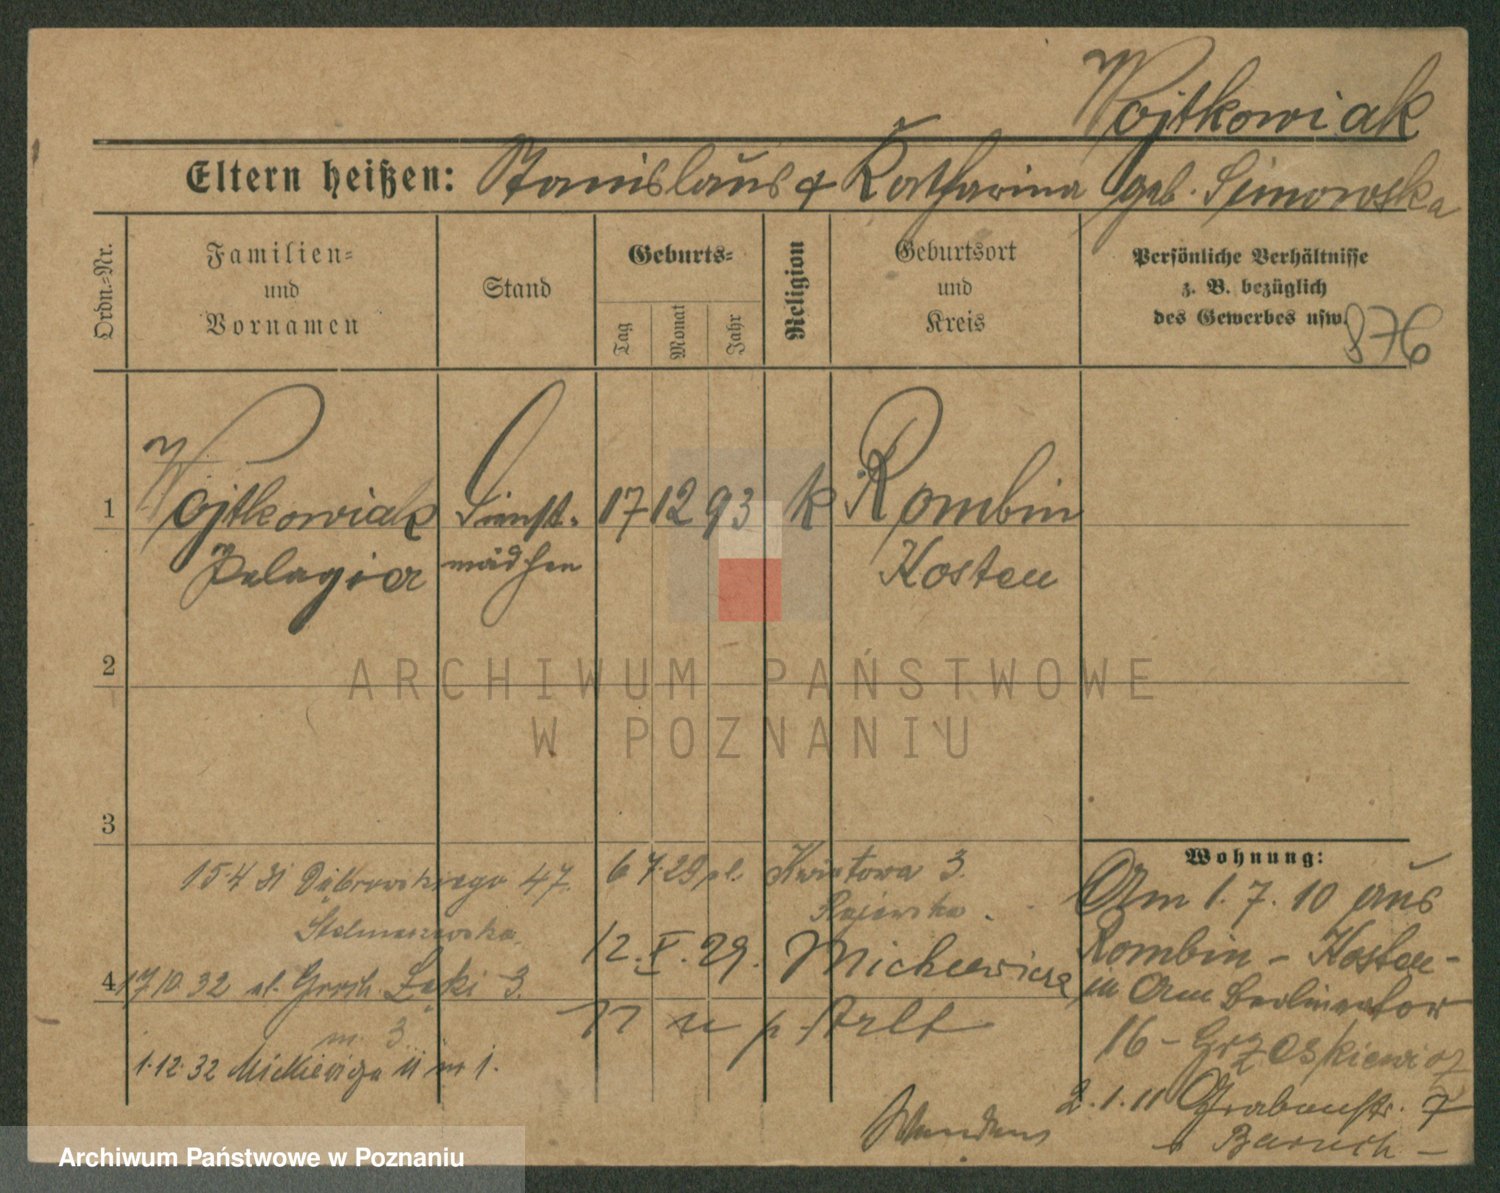 Wojtkowiak
Eltern heißen: Stanislaus & Katharina geb. Simowska
Ordn.=Nr.
Familien=
und
Vornamen
Stand
Geburts=
Tag
Monat
Jahr
Religion
Geburtsort
und
Kreis
Persönliche Verhältnisse
z. B. bezüglich
des Gewerbes usw.
876
1
Wojtkowiak
Pelagia
Dienst-
mädchen
17 12 93
k
Rombin
Kosten
2
3
4
15.4 31 Dąbrowskiego 47
17 10. 32 pl. Łąki 3.
m 3
1.12.32 Mickiewicza 11 m 1.
6 7.29 pl. Kwiatowa 3.
12. X. 29. Mickiewicza
11 p. Arlt
Wohnung:
Am 1. 7. 10 aus
Rombin - Kosten -
in Am Berlinertor
16 - Grzeskiewicz
2. 1. 11 Grabenstr. 7
Baruch -
ARCHIWUM PAŃSTWOWE
W POZNANIU
Archiwum Państwowe w Poznaniu